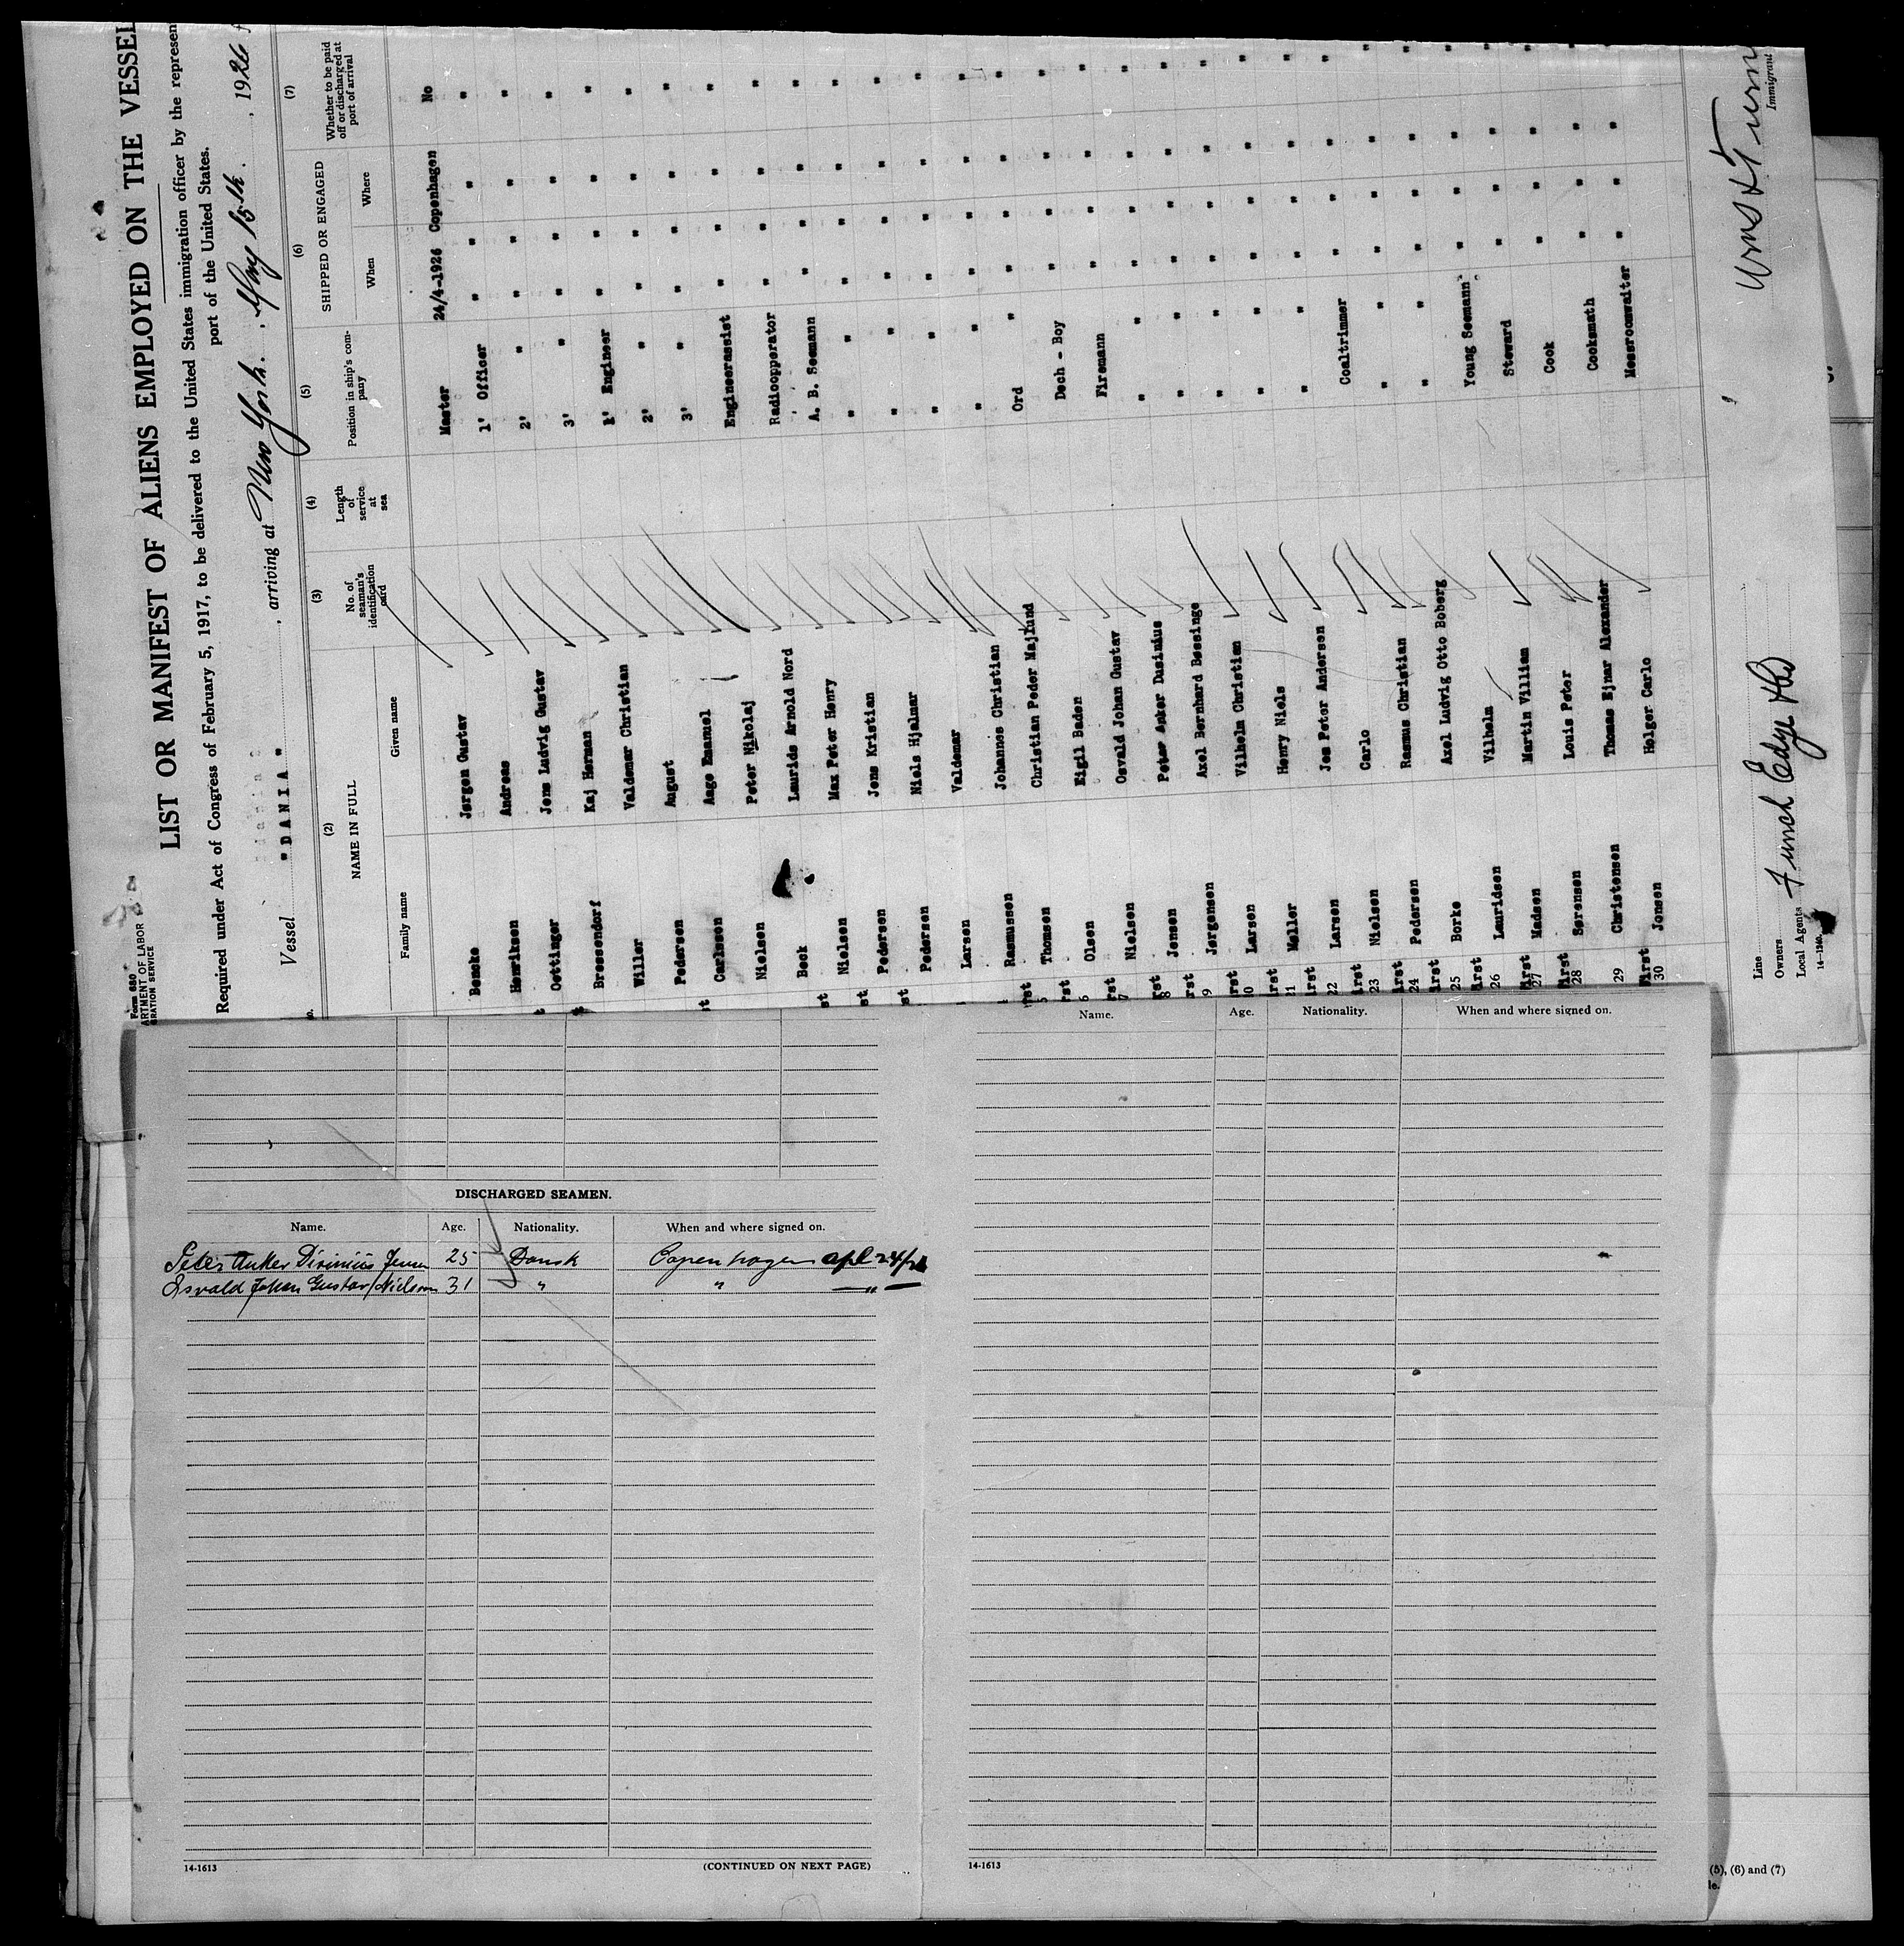 Form 680
ARTMENT OF LABOR
GRATION SERVICE
LIST OR MANIFEST OF ALIENS EMPLOYED ON THE VESSEL
Required under Act of Congress of February 5, 1917, to be delivered to the United States immigration officer by the represen
port of the United States.
Vessel "DANIA", arriving at New York, May 15th, 1926
(2) (3) (4) (5) (6) (7)
NAME IN FULL
No. of seaman's identification card
Length of service at sea
Position in ship's company
SHIPPED OR ENGAGED
Whether to be paid off or discharged at port of arrival
Family name Given name When Where
Bencke Jørgen Gustav Master 24/4-1926 Copenhagen No
Henriksen Andreas 1' Officer " " "
Oettinger Jens Ludvig Gustav 2' " " " "
Bressendorf Kaj Herman 3' " " " "
Willer Valdemar Christian 1' Engineer " " "
Pedersen August 2' " " " "
Carlsson Aage Emanuel 3' " " " "
Nielsen Peter Nikolaj Engineerassist " " "
Beck Laurids Arnold Nord Radioopperator " " "
Nielsen Max Peter Henry A. B. Seemann " " "
Pedersen Jens Kristian " " " " "
Pedersen Niels Hjalmar " " " " "
Larsen Valdemar " " " " "
Rasmussen Johannes Christian " " " " "
Thomsen Christian Peder Majlund Ord " " " "
Olsen Eigil Baden Dech - Boy " " "
7 Nielsen Osvald Johan Gustav Firemann " " "
8 Jensen Peter Anker Dusinius " " " " "
9 Jørgensen Axel Bernhard Bessinge " " " " "
Larsen Vilhelm Christian " " " " "
21 Møller Henry Niels " " " " "
22 Larsen Jes Peter Andersen " " " " "
23 Nielsen Carlo Coaltrimmer " " "
24 Pedersen Rasmus Christian " " " " "
25 Borke Axel Ludvig Otto Boberg " " " " "
26 Lauridsen Vilhelm Young Seemann " " "
27 Madsen Martin Villiam Steward " " "
28 Sørensen Louis Peter Cook " " "
29 Christensen Thomas Ejnar Alexander Cooksmath " " "
30 Jensen Holger Carlo Messroomwaiter " " "
Line
Owners
Local Agents Funch Edye & Co
Immigrant
14-1240
DISCHARGED SEAMEN.
Name. Age. Nationality. When and where signed on.
Peter Anker Jensen 25 Dansk Copenhagen apl 24/
Osvald Johan Gustav Nielsen 31 " " "
14-1613 (CONTINUED ON NEXT PAGE)
Name. Age. Nationality. When and where signed on.
14-1613
(5), (6) and (7)
le.